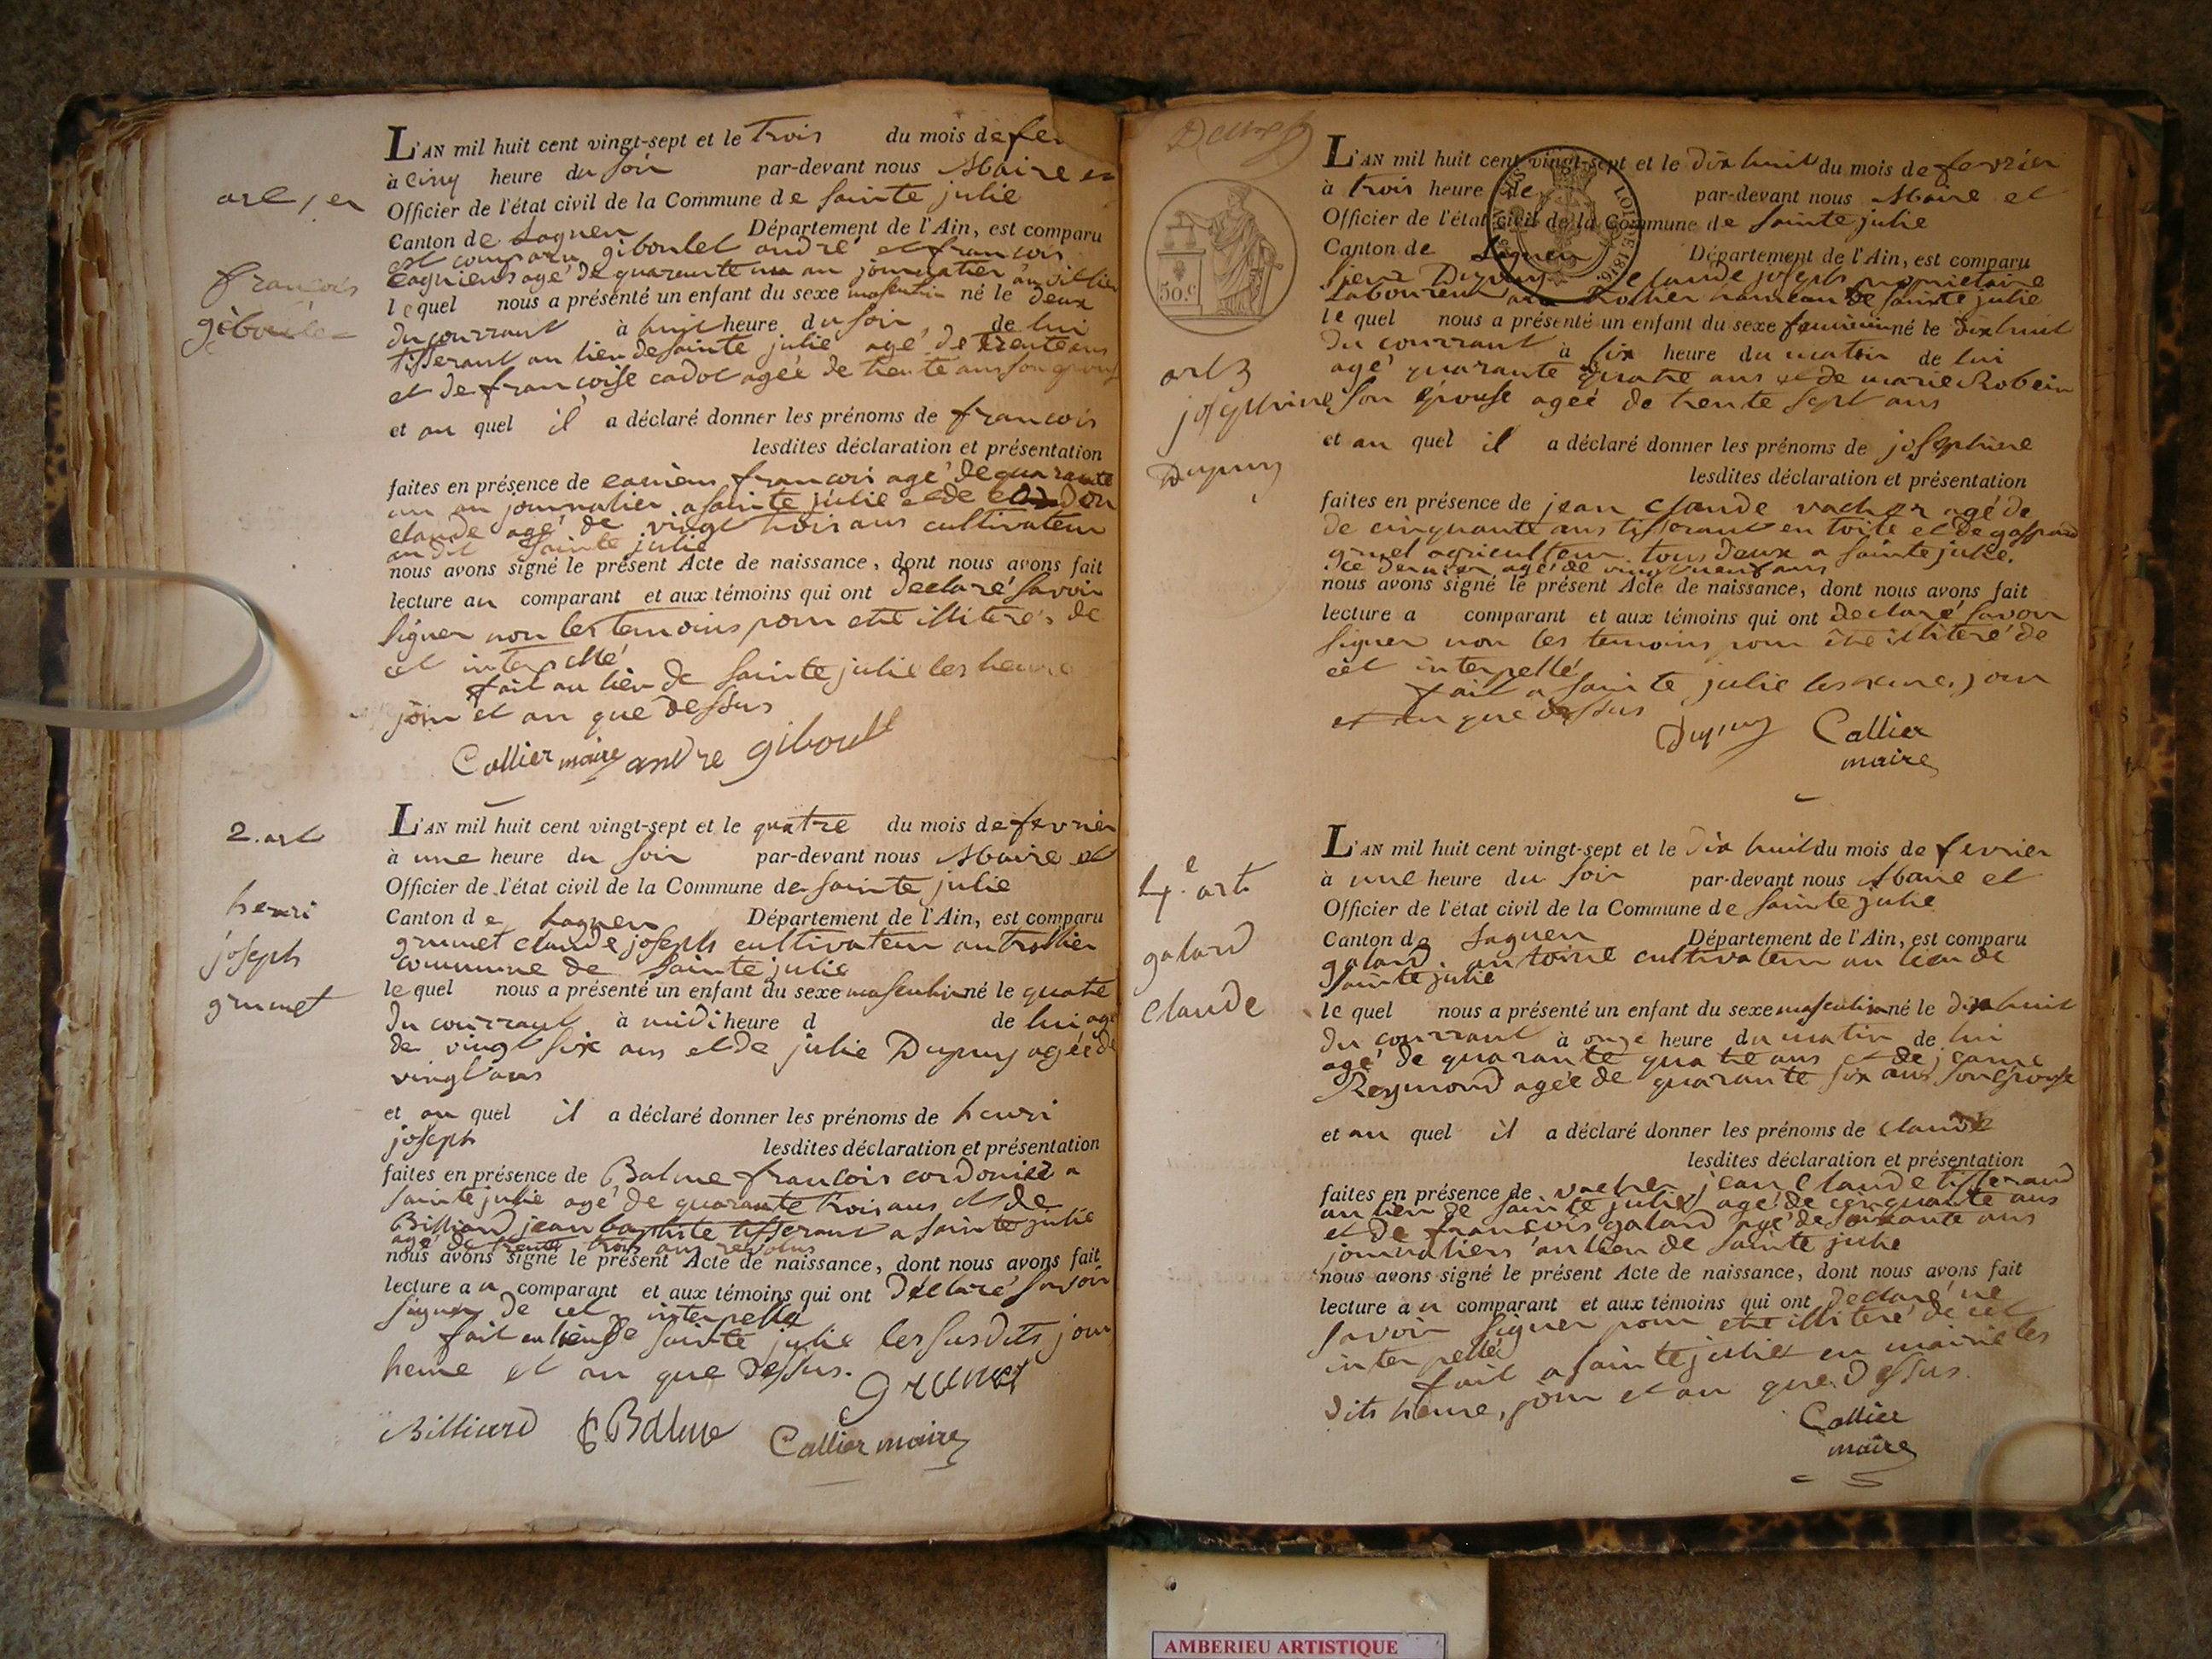 art 1er
françois
giboulet
L'AN mil huit cent vingt-sept et le trois du mois de fev
à cinq heure du soir par-devant nous Maire et
Officier de l'état civil de la Commune de sainte julie
Canton de Lagneu Département de l'Ain, est comparu
est comparu giboulet andré et françois
agé de quarante un an journalier
le quel nous a présenté un enfant du sexe masculin né le deux
du courrant à huit heure du soir, de lui
tisserant au lieu de sainte julie agé de trente ans
et de françoise cadot agée de trente ans son epouse
et au quel il a déclaré donner les prénoms de françois
lesdites déclaration et présentation
faites en présence de françois agé de quarante
un an journalier a sainte julie et de
claude agé de vingt trois ans cultivateur
au dit sainte julie
nous avons signé le présent Acte de naissance, dont nous avons fait
lecture au comparant et aux témoins qui ont declaré savoir
signer non les temoins pour etre illiteré de
cet interpellé
fait au lieu de sainte julie les heure
jour et an que dessus
Callier maire andre giboulet
2. art
henri
joseph
grumet
L'AN mil huit cent vingt-sept et le quatre du mois de fevrier
à une heure du soir par-devant nous Maire et
Officier de l'état civil de la Commune de sainte julie
Canton de Lagneu Département de l'Ain, est comparu
grumet claude joseph cultivateur au trollier
commune de sainte julie
le quel nous a présenté un enfant du sexe masculin né le quatre
du courrant à midi heure d de lui agé
de vingt six ans et de julie Dupuy agée de
vingt ans
et au quel il a déclaré donner les prénoms de henri
joseph lesdites déclaration et présentation
faites en présence de Balme françois cordonier a
sainte julie agé de quarante trois ans et de
Billiard jean baptiste tisserant a sainte julie
agé de trente trois ans revolus
nous avons signé le présent Acte de naissance, dont nous avons fait
lecture au comparant et aux témoins qui ont declaré savoir
signer de cet interpellé
fait au lieu de sainte julie les susdits jour
heure et an que dessus. grumet
Billiard Balme Callier maire
50.c
LOI DE 1816.
art 3
josephine
Dupuy
L'AN mil huit cent vingt-sept et le dix huit du mois de fevrier
à trois heure de par-devant nous Maire et
Officier de l'état civil de la Commune de sainte julie
Canton de Lagneu Département de l'Ain, est comparu
sieur Dupuy claude joseph proprietaire
laboureur au trollier hameau de sainte julie
le quel nous a présenté un enfant du sexe feminin né le dix huit
du courrant à six heure du matin de lui
agé quarante quatre ans et de marie Robein
son epouse agée de trente sept ans
et au quel il a déclaré donner les prénoms de josephine
lesdites déclaration et présentation
faites en présence de jean claude vacher agé de
de cinquante ans tisserant en toile et de gaspard
agriculteur tous deux a sainte julie.
ce dernier agé de vingt neuf ans
nous avons signé le présent Acte de naissance, dont nous avons fait
lecture a comparant et aux témoins qui ont declaré savoir
signer non les temoins pour être illiteré de
cet interpellé
fait a sainte julie les heure, jour
et an que dessus
Dupuy Callier
maire
4.e art
galand
claude
L'AN mil huit cent vingt-sept et le dix huit du mois de fevrier
à une heure du soir par-devant nous Maire et
Officier de l'état civil de la Commune de sainte julie
Canton de Lagneu Département de l'Ain, est comparu
galand antoine cultivateur au lieu de
sainte julie
le quel nous a présenté un enfant du sexe masculin né le dix huit
du courrant à onze heure du matin de lui
agé de quarante quatre ans et de jeanne
Reymond agée de quarante six ans son epouse
et au quel il a déclaré donner les prénoms de claude
lesdites déclaration et présentation
faites en présence de vacher jean claude tisserand
au lieu de sainte julie agé de cinquante ans
et de françois galand agé de soixante ans
journaliers au lieu de sainte julie
nous avons signé le présent Acte de naissance, dont nous avons fait
lecture au comparant et aux témoins qui ont declaré ne
savoir signer pour etre illiteré de cet
interpellé
fait a sainte julie en mairie les
dits heure, jour et an que dessus.
Callier
maire
AMBERIEU ARTISTIQUE